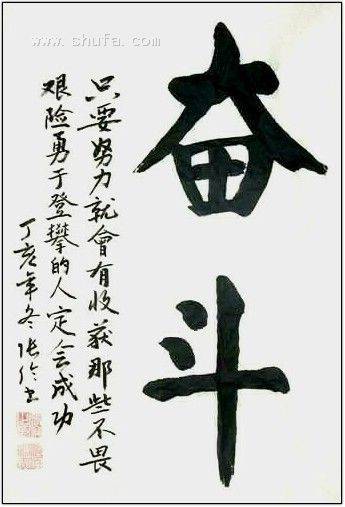 www.shufa.com
奋斗
只要努力就會有收获那些不畏
艰险勇于登攀的人定会成功
丁亥年冬张书